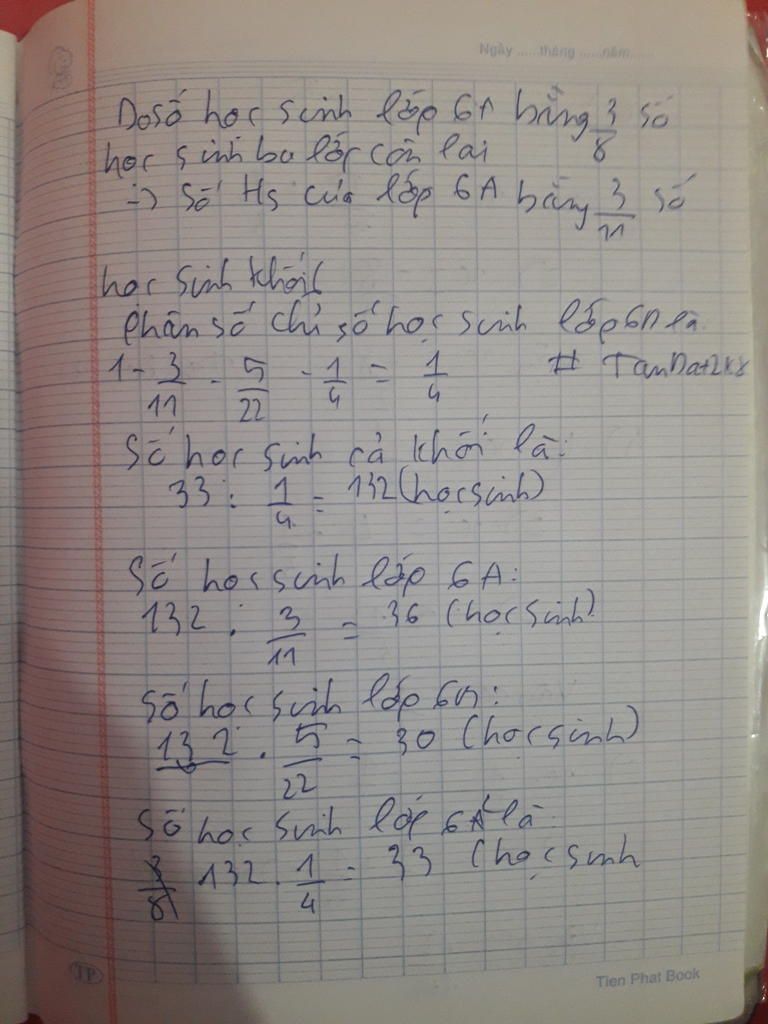 Ngày ......tháng ......năm......
Do số học sinh lớp 6A bằng 3/8 số
học sinh ba lớp còn lại
=> số Hs của lớp 6A bằng 3/11 số
học sinh khối
phân số chỉ số học sinh lớp là
1 - 3/11 - 5/22 - 1/4 = 1/4
Số học sinh cả khối là:
33 : 1/4 = 132 (học sinh)
Số học sinh lớp 6A:
132 : 3/11 = 36 (học sinh)
Số học sinh lớp :
132 . 5/22 = 30 (học sinh)
Số học sinh lớp là
132 . 1/4 = 33 (học sinh
TP
Tien Phat Book